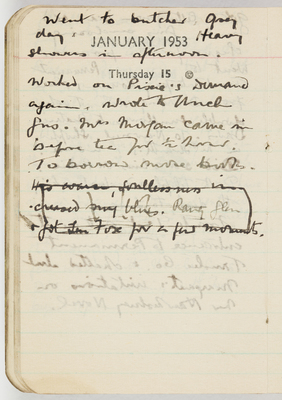 Went to butcher Grey
day. Heavy
JANUARY 1953
showers in afternoon.
Thursday 15
Worked on Pixie's Demand
again, wrote to Uncle
Jno. Mrs Morgan came in
before tea for ½ hour.
To borrow more books.
in
my blues. Rang
& got Fox for a few moments.